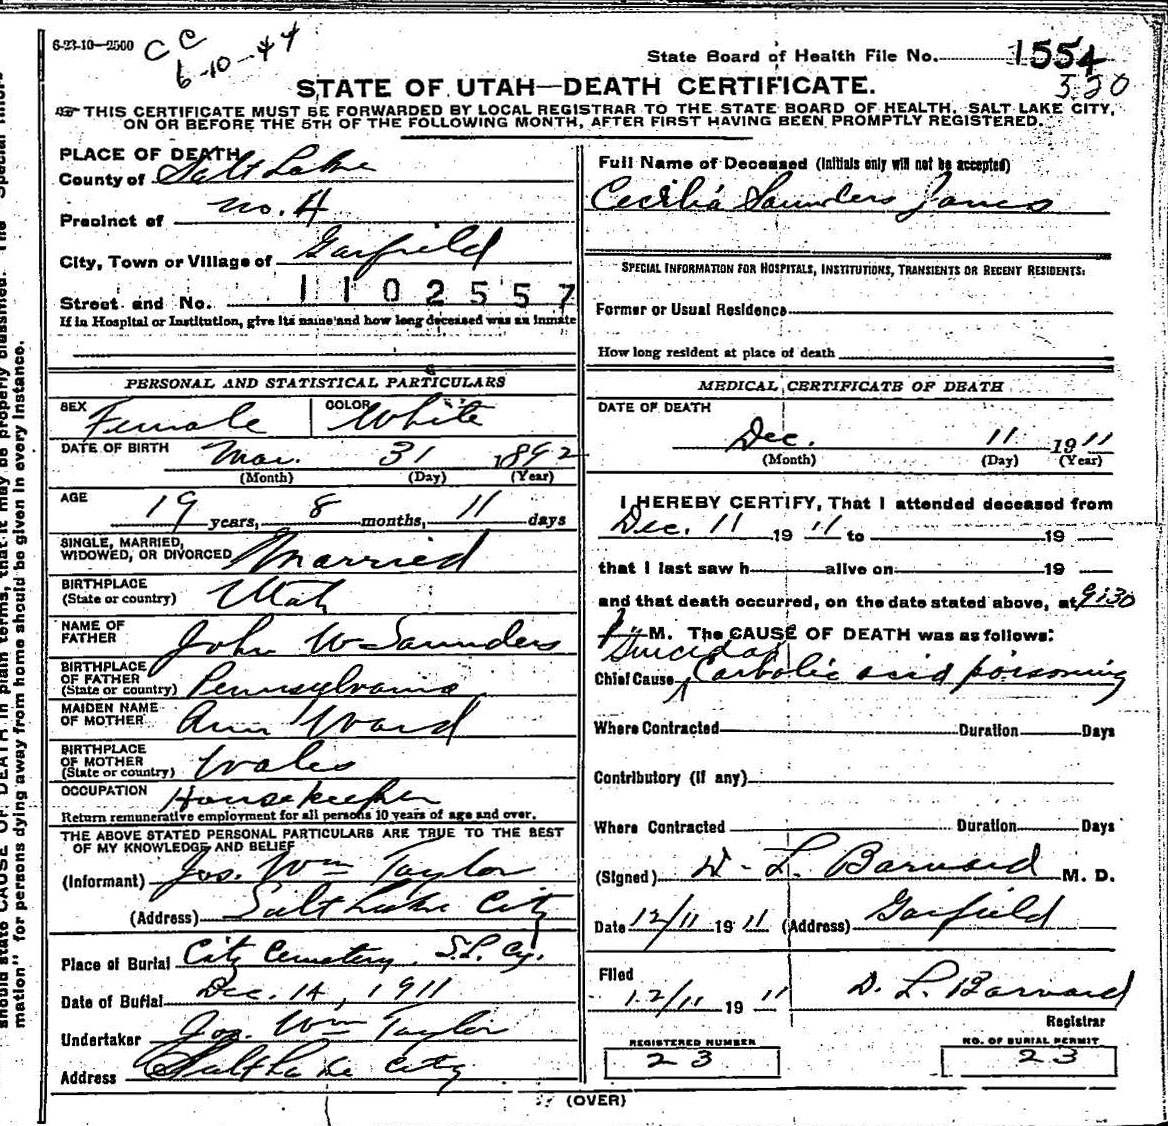 6-23-10—2500
CC
6-10-44
State Board of Health File No. 1554
320
STATE OF UTAH—DEATH CERTIFICATE.
THIS CERTIFICATE MUST BE FORWARDED BY LOCAL REGISTRAR TO THE STATE BOARD OF HEALTH, SALT LAKE CITY,
ON OR BEFORE THE 5TH OF THE FOLLOWING MONTH, AFTER FIRST HAVING BEEN PROMPTLY REGISTERED.
PLACE OF DEATH
County of Salt Lake
Precinct of no. 4
City, Town or Village of Garfield
Street and No. 1102557
If in Hospital or Institution, give its name and how long deceased was an inmate
PERSONAL AND STATISTICAL PARTICULARS
SEX Female COLOR White
DATE OF BIRTH Mar. 31 1892
(Month) (Day) (Year)
AGE
19 years, 8 months, 11 days
SINGLE, MARRIED,
WIDOWED, OR DIVORCED Married
BIRTHPLACE
(State or country) Utah
NAME OF
FATHER John W Saunders
BIRTHPLACE
OF FATHER
(State or country) Pennsylvania
MAIDEN NAME
OF MOTHER Ann Ward
BIRTHPLACE
OF MOTHER
(State or country) Wales
OCCUPATION Housekeeper
Return remunerative employment for all persons 10 years of age and over.
THE ABOVE STATED PERSONAL PARTICULARS ARE TRUE TO THE BEST
OF MY KNOWLEDGE AND BELIEF
(Informant) Jos. Wm Taylor
(Address) Salt Lake City
Place of Burial City Cemetery. S.L. Cy.
Date of Burial Dec. 14, 1911
Undertaker Jos. Wm Taylor
Address Salt Lake City
Full Name of Deceased (Initials only will not be accepted)
Cecilia Saunders Jones
SPECIAL INFORMATION FOR HOSPITALS, INSTITUTIONS, TRANSIENTS OR RECENT RESIDENTS:
Former or Usual Residence
How long resident at place of death
MEDICAL CERTIFICATE OF DEATH
DATE OF DEATH
Dec. 11 1911
(Month) (Day) (Year)
I HEREBY CERTIFY, That I attended deceased from
Dec. 11 19 11 to 19
that I last saw h alive on 19
and that death occurred, on the date stated above, at 9:30
P M. The CAUSE OF DEATH was as follows:
Suicidal
Chief Cause Carbolic acid poisoning
Where Contracted Duration Days
Contributory (if any)
Where Contracted Duration Days
(Signed) D. L. Barnard M. D.
Date 12/11 19 11 (Address) Garfield
Filed
12/11 19 11 D. L. Barnard
Registrar
REGISTERED NUMBER
23
NO. OF BURIAL PERMIT
23
(OVER)
should state CAUSE OF DEATH in plain terms, that it may be properly classified. The "Special Infor-
mation" for persons dying away from home should be given in every instance.